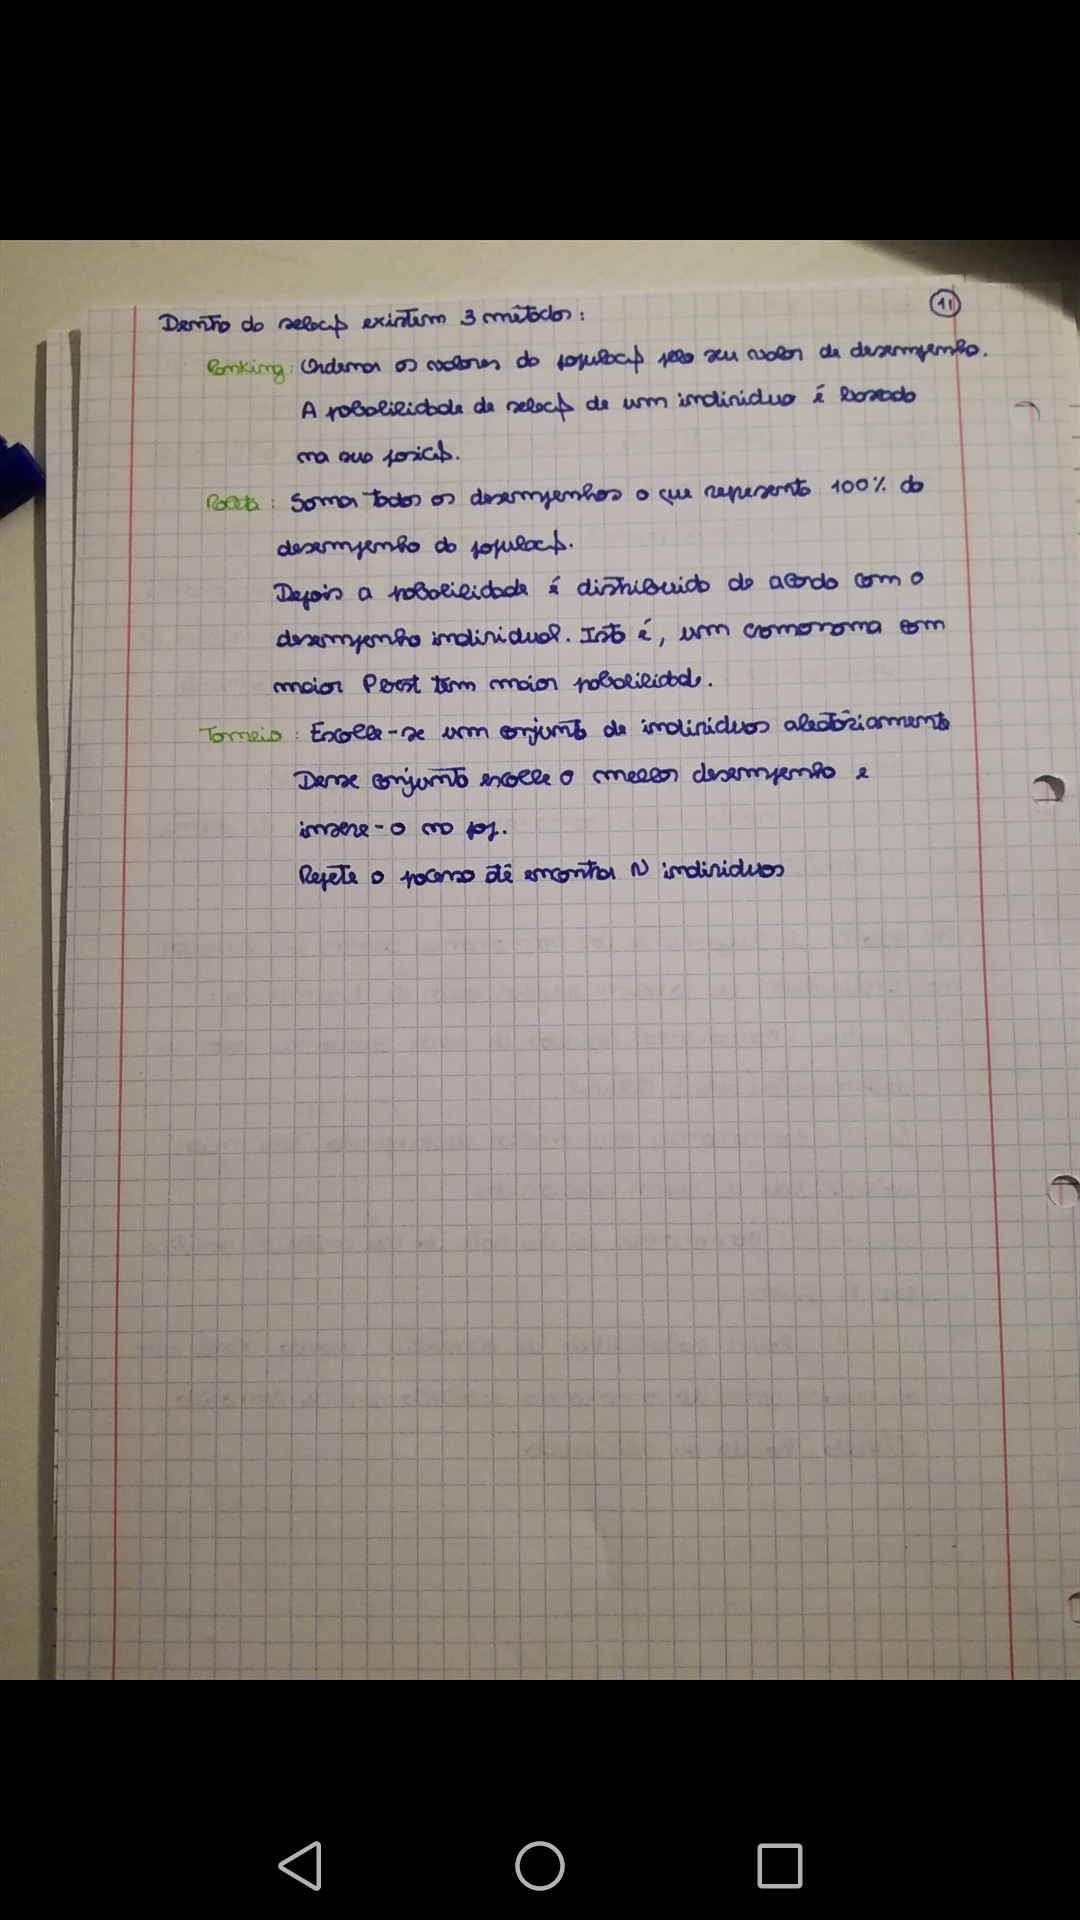 11
Dentro da seleção existem 3 métodos:
Ranking: Ordenar os valores da população pelo seu valor de desempenho.
A probabilidade de seleção de um individuo é baseada
na sua posição.
Roleta: Somar todos os desempenhos o que representa 100% do
desempenho da população.
Depois a probabilidade é distribuida de acordo com o
desempenho individual. Isto é, um cromossoma com
maior tem maior probabilidade.
Torneio: Escolhe-se um conjunto de individuos aleatóriamente
Desse conjunto escolhe o melhor desempenho e
insere-o na pop.
Repete o processo até encontrar N individuos